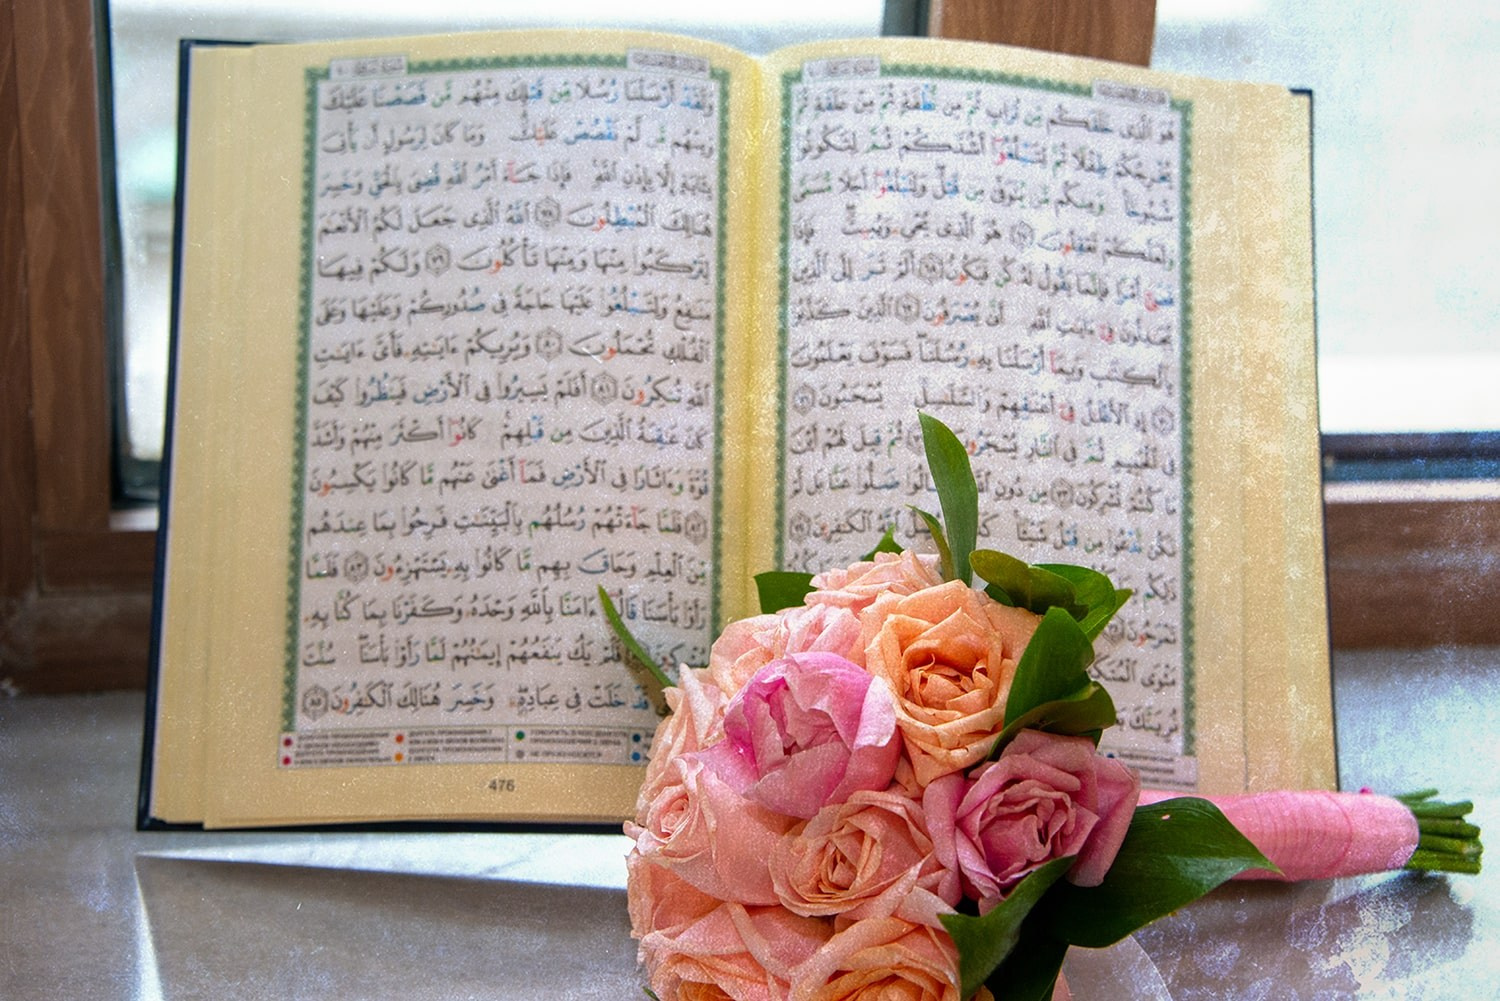 هُوَ ٱلَّذِى خَلَقَكُم مِّن تُرَابٍ ثُمَّ مِن نُّطْفَةٍ ثُمَّ مِنْ عَلَقَةٍ ثُمَّ
يُخْرِجُكُمْ طِفْلًا ثُمَّ لِتَبْلُغُوٓا۟ أَشُدَّكُمْ ثُمَّ لِتَكُونُوا۟
شُيُوخًا وَمِنكُم مَّن يُتَوَفَّىٰ مِن قَبْلُ وَلِتَبْلُغُوٓا۟ أَجَلًا مُّسَمًّى
وَلَعَلَّكُمْ تَعْقِلُونَ ٦٧ هُوَ ٱلَّذِى يُحْىِۦ وَيُمِيتُ فَإِذَا
قَضَىٰٓ أَمْرًا فَإِنَّمَا يَقُولُ لَهُۥ كُن فَيَكُونُ ٦٨ أَلَمْ تَرَ إِلَى ٱلَّذِينَ
يُجَٰدِلُونَ فِىٓ ءَايَٰتِ ٱللَّهِ أَنَّىٰ يُصْرَفُونَ ٦٩ ٱلَّذِينَ كَذَّبُوا۟
بِٱلْكِتَٰبِ وَبِمَآ أَرْسَلْنَا بِهِۦ رُسُلَنَا فَسَوْفَ يَعْلَمُونَ
٧٠ إِذِ ٱلْأَغْلَٰلُ فِىٓ أَعْنَٰقِهِمْ وَٱلسَّلَٰسِلُ يُسْحَبُونَ ٧١
فِى ٱلْحَمِيمِ ثُمَّ فِى ٱلنَّارِ يُسْجَرُونَ ثُمَّ قِيلَ لَهُمْ أَيْنَ
مَا كُنتُمْ تُشْرِكُونَ ٧٣ مِن دُونِ ٱللَّهِ قَالُوا۟ ضَلُّوا۟ عَنَّا بَل لَّمْ
نَكُن نَّدْعُوا۟ مِن قَبْلُ شَيْـًٔا ٱللَّهُ ٱلْكَٰفِرِينَ ٧٤
ذَٰلِكُم
تَمْرَحُونَ
مَثْوَى
نُرِيَنَّكَ
وَلَقَدْ أَرْسَلْنَا رُسُلًا مِّن قَبْلِكَ مِنْهُم مَّن قَصَصْنَا عَلَيْكَ
وَمِنْهُم مَّن لَّمْ نَقْصُصْ عَلَيْكَ وَمَا كَانَ لِرَسُولٍ أَن يَأْتِىَ
بِـَٔايَةٍ إِلَّا بِإِذْنِ ٱللَّهِ فَإِذَا جَآءَ أَمْرُ ٱللَّهِ قُضِىَ بِٱلْحَقِّ وَخَسِرَ
هُنَالِكَ ٱلْمُبْطِلُونَ ٧٨ ٱللَّهُ ٱلَّذِى جَعَلَ لَكُمُ ٱلْأَنْعَٰمَ
لِتَرْكَبُوا۟ مِنْهَا وَمِنْهَا تَأْكُلُونَ ٧٩ وَلَكُمْ فِيهَا
مَنَٰفِعُ وَلِتَبْلُغُوا۟ عَلَيْهَا حَاجَةً فِى صُدُورِكُمْ وَعَلَيْهَا وَعَلَى
ٱلْفُلْكِ تُحْمَلُونَ ٨٠ وَيُرِيكُمْ ءَايَٰتِهِۦ فَأَىَّ ءَايَٰتِ
ٱللَّهِ تُنكِرُونَ ٨١ أَفَلَمْ يَسِيرُوا۟ فِى ٱلْأَرْضِ فَيَنظُرُوا۟ كَيْفَ
كَانَ عَٰقِبَةُ ٱلَّذِينَ مِن قَبْلِهِمْ كَانُوٓا۟ أَكْثَرَ مِنْهُمْ وَأَشَدَّ
قُوَّةً وَءَاثَارًا فِى ٱلْأَرْضِ فَمَآ أَغْنَىٰ عَنْهُم مَّا كَانُوا۟ يَكْسِبُونَ
٨٢ فَلَمَّا جَآءَتْهُمْ رُسُلُهُم بِٱلْبَيِّنَٰتِ فَرِحُوا۟ بِمَا عِندَهُم
مِّنَ ٱلْعِلْمِ وَحَاقَ بِهِم مَّا كَانُوا۟ بِهِۦ يَسْتَهْزِءُونَ ٨٣ فَلَمَّا
رَأَوْا۟ بَأْسَنَا قَالُوٓا۟ ءَامَنَّا بِٱللَّهِ وَحْدَهُۥ وَكَفَرْنَا بِمَا كُنَّا بِهِۦ
مُشْرِكِينَ فَلَمْ يَكُ يَنفَعُهُمْ إِيمَٰنُهُمْ لَمَّا رَأَوْا۟ بَأْسَنَا سُنَّتَ
قَدْ خَلَتْ فِى عِبَادِهِۦ وَخَسِرَ هُنَالِكَ ٱلْكَٰفِرُونَ ٨٥
476